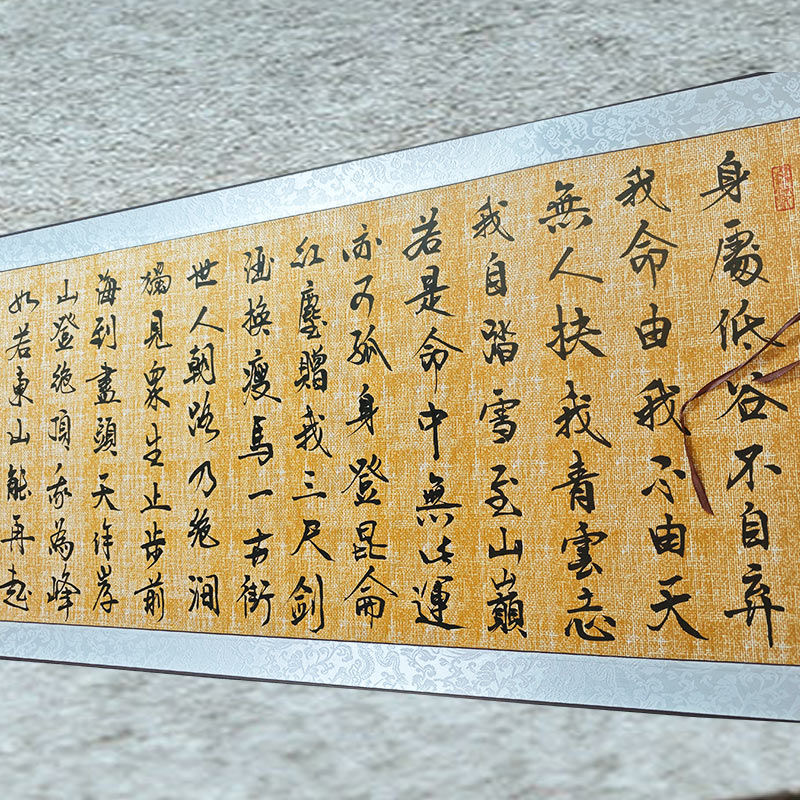 身處低谷不自弃
我命由我不由天
無人扶我青雲志
我自踏雪至山巔
若是命中無此運
亦可孤身登昆侖
紅塵贈我三尺劍
酒換瘦馬一古街
世人朝路乃絶澗
獨見眾生止步前
海到盡頭天作岸
山登絶頂我為峰
如若東山能再起